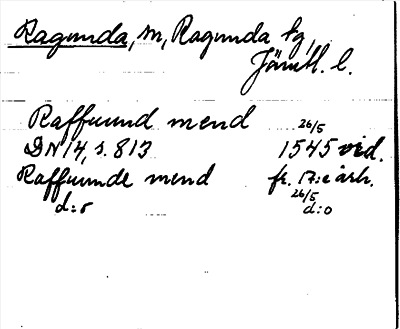 Ragunda, m, Ragunda sg,
Jämtl. l.
Raffuund mend 26/5
DN 14, s. 813 1545 vid.
Raffuunde mend fr. 17:e årh.
d:o 26/5 d:o